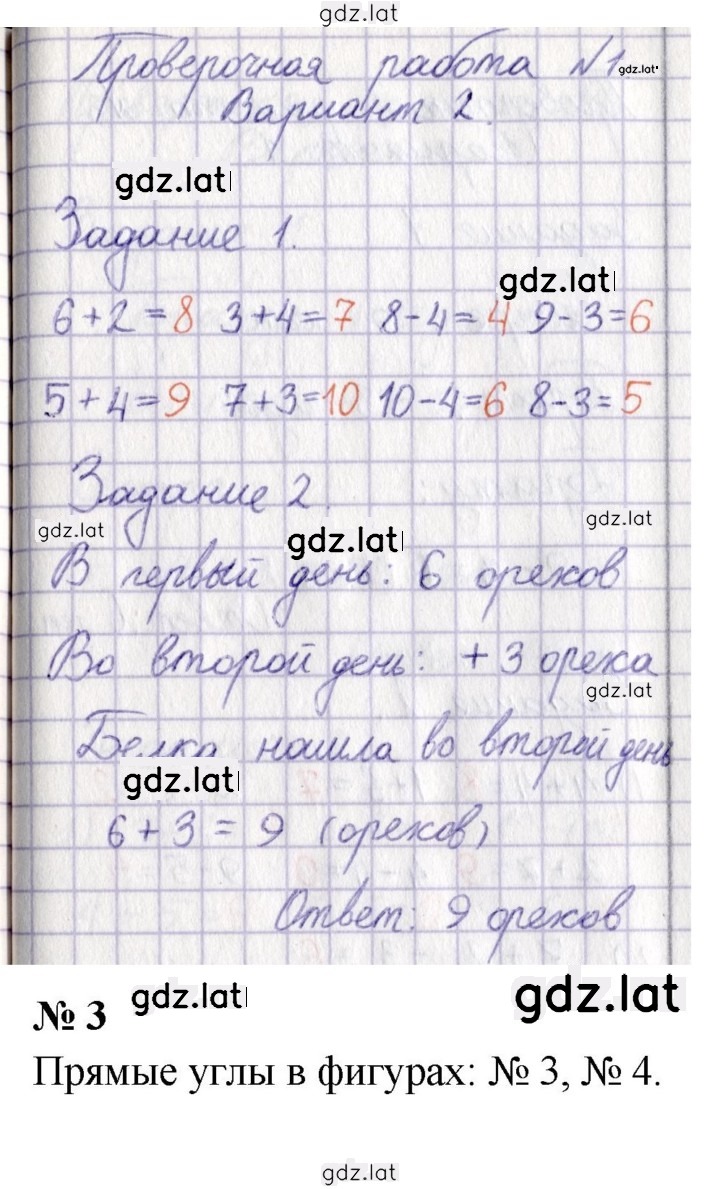 gdz.lat
Проверочная работа №1. gdz.lat
Вариант 2.
gdz.lat
Задание 1.
gdz.lat
6+2=8 3+4=7 8-4=4 9-3=6
5+4=9 7+3=10 10-4=6 8-3=5
Задание 2.
gdz.lat gdz.lat gdz.lat
В первый день: 6 орехов
Во второй день: +3 ореха
gdz.lat
Белка нашла во второй день
gdz.lat
6+3=9 (орехов)
Ответ: 9 орехов
№ 3 gdz.lat gdz.lat
Прямые углы в фигурах: № 3, № 4.
gdz.lat